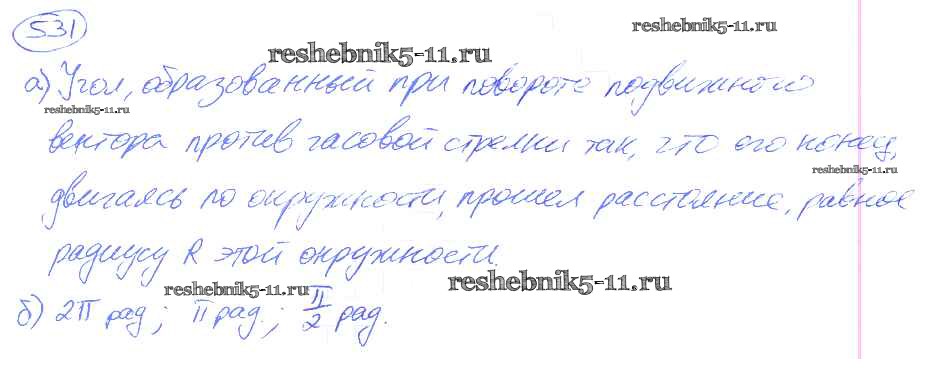 531
reshebnik5-11.ru
reshebnik5-11.ru
а) Угол, образованный при повороте подвижного
reshebnik5-11.ru
вектора против часовой стрелки так, что его конец,
reshebnik5-11.ru
двигаясь по окружности, прошел расстояние, равное
радиусу R этой окружности.
reshebnik5-11.ru
reshebnik5-11.ru
б) 2π рад; π рад.; π/2 рад.